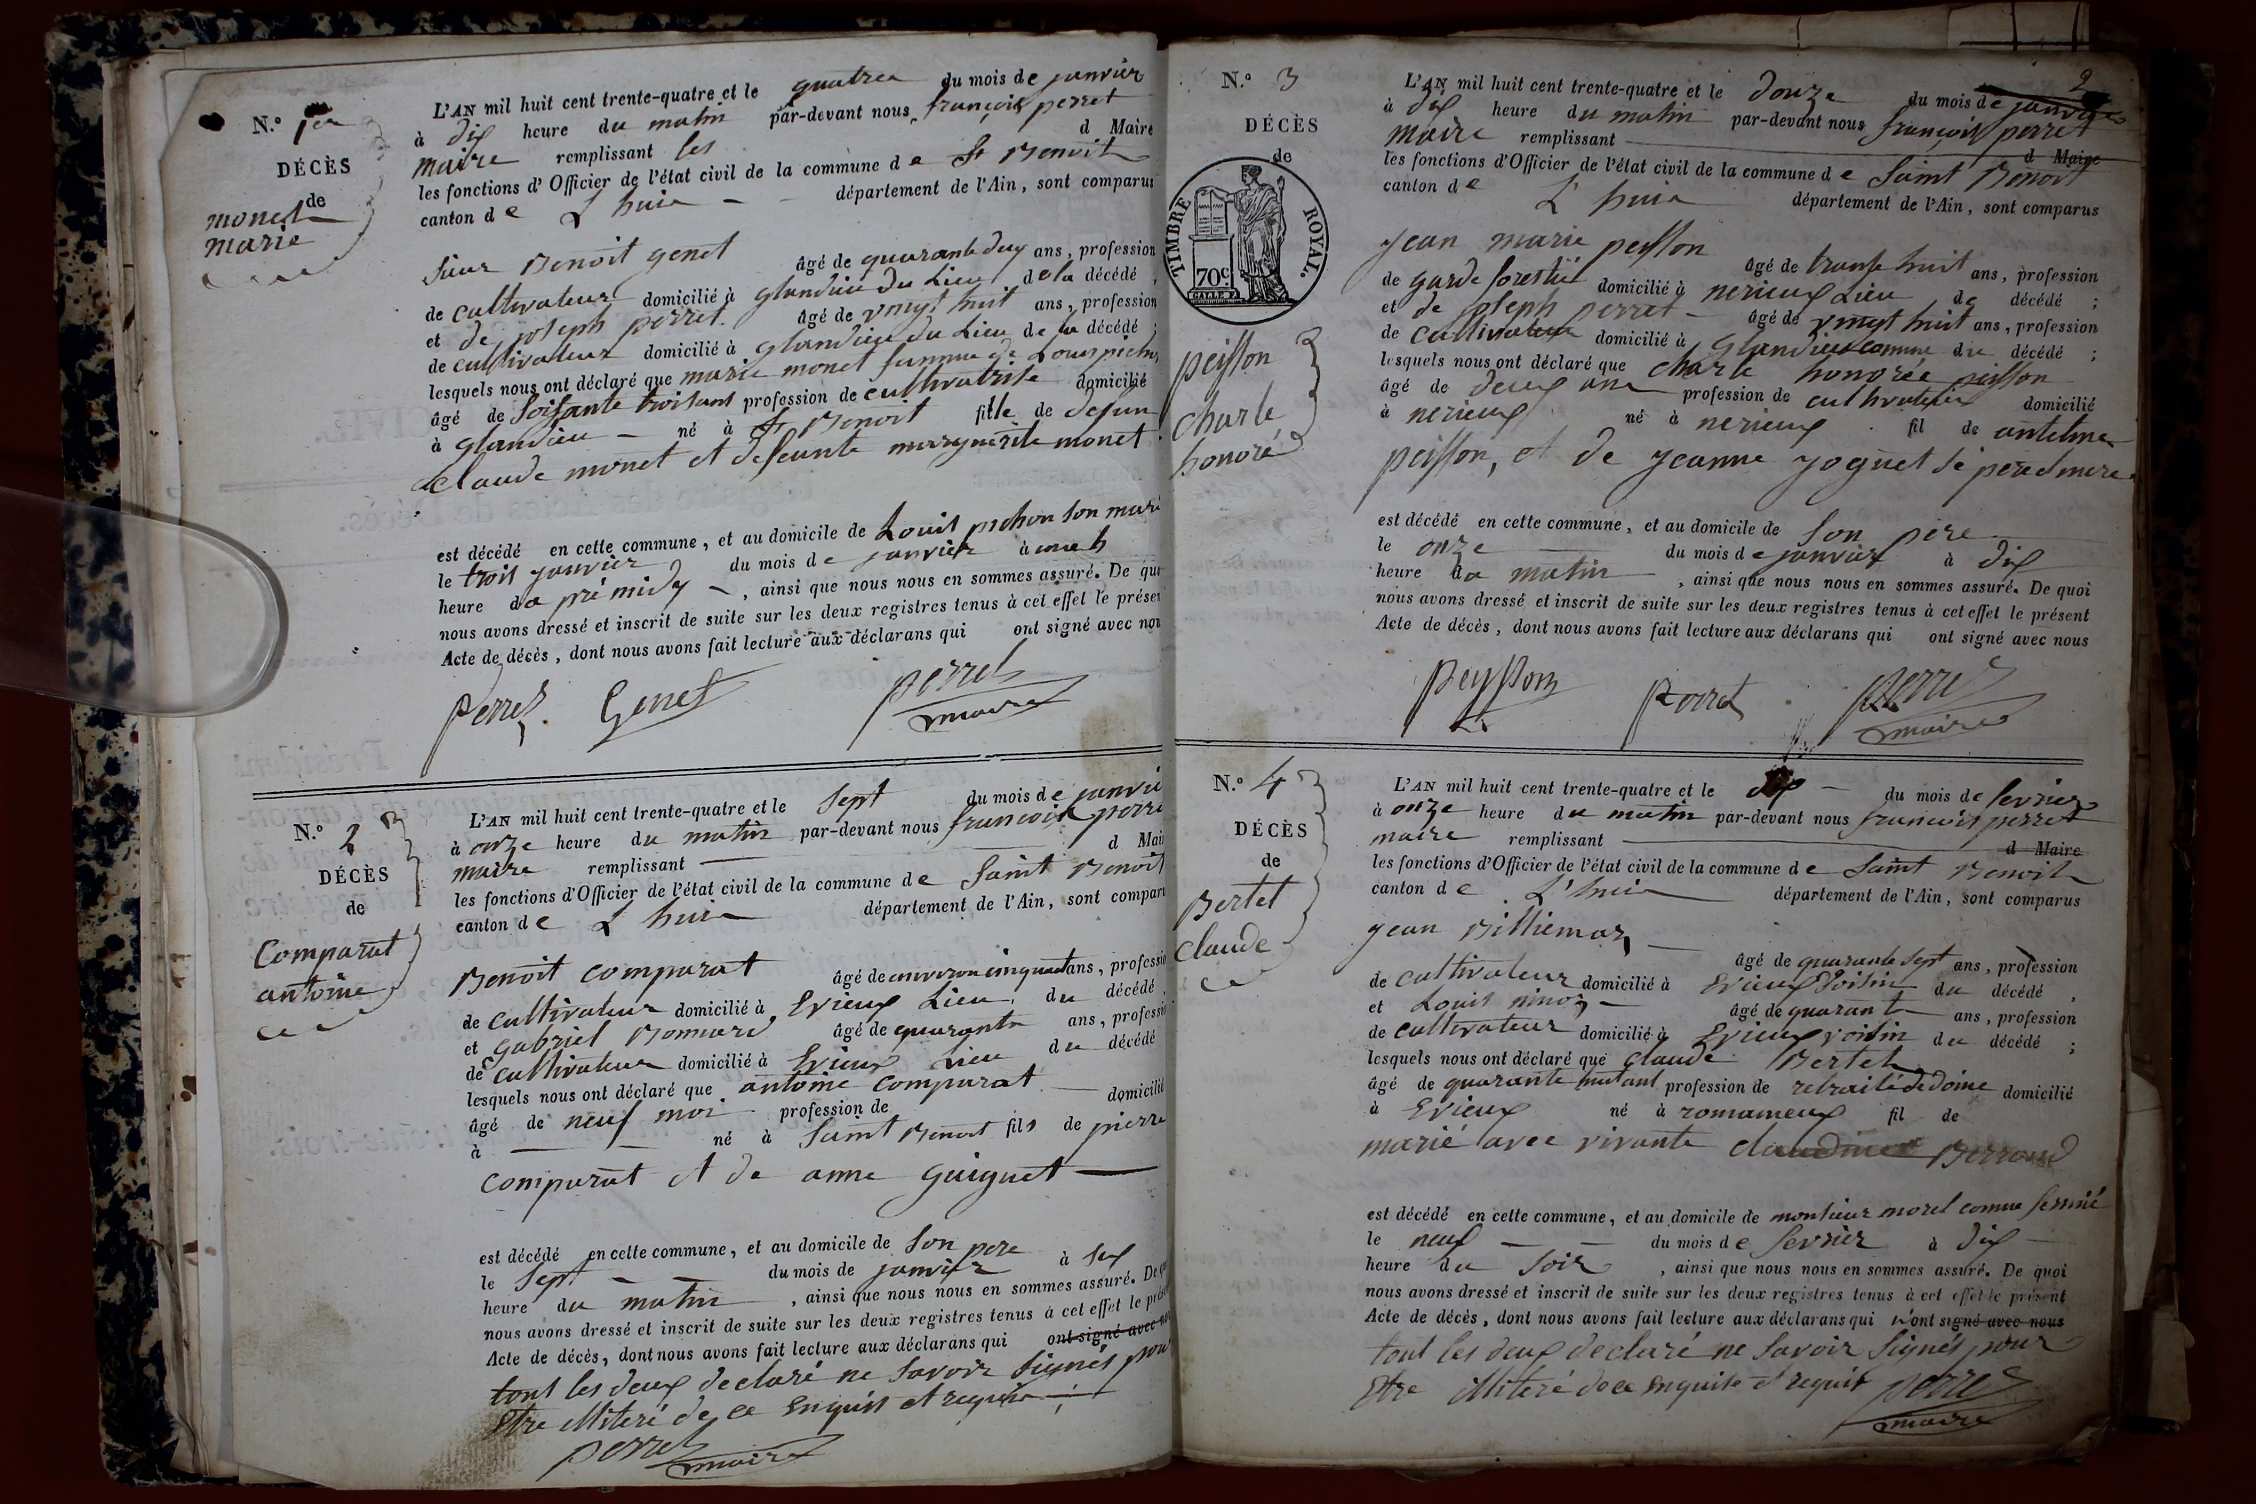 N.º 1er
DÉCÈS
de
monet
marie
L'AN mil huit cent trente-quatre et le quatre du mois de janvier
à dix heure du matin par-devant nous françois perret
maire remplissant les d Maire
les fonctions d'Officier de l'état civil de la commune de St Benoit
canton de L'huis département de l'Ain, sont comparus
sieur Benoit genet âgé de quarante deux ans, profession
de cultivateur domicilié à glandieu du Lieu de la décédé,
et de joseph perret âgé de vingt huit ans, profession
de cultivateur domicilié à glandieu du Lieu de la décédé ;
lesquels nous ont déclaré que marie monet famme de Louis pichon
âgé de soisante troisans profession de cultivatrise domicilié
à glandieu né à St Benoit fille de defun
claude monet et defeunte marguerite monet
est décédé en cette commune, et au domicile de Louis pichon son mari
le trois janvier du mois de janvier à onse h
heure da prémidy, ainsi que nous nous en sommes assuré. De quoi
nous avons dressé et inscrit de suite sur les deux registres tenus à cet effet le présen
Acte de décès, dont nous avons fait lecture aux déclarans qui ont signé avec nou
perret Genet perret
maire
N.º 2
DÉCÈS
de
Comparat
antoine
L'AN mil huit cent trente-quatre et le sept du mois de janvie
à onze heure du matin par-devant nous francois perre
maire remplissant d Mair
les fonctions d'Officier de l'état civil de la commune de Saint Benoit
canton de L'huis département de l'Ain, sont comparu
Benoit comparat âgé de environ cinquant ans, professio
de cultivateur domicilié à Evieux Lieu du décédé,
et gabriel Bonnard âgé de quarante ans, professio
de cultivateur domicilié à Evieux Lieu du décédé
lesquels nous ont déclaré que antoine comparat
âgé de neuf moi profession de domicilié
à né à Saint Benoit fils de pierre
comparat et de anne guiguet
est décédé en cette commune, et au domicile de son pere
le sept du mois de janvier à six
heure du matin, ainsi que nous nous en sommes assuré. De qu
nous avons dressé et inscrit de suite sur les deux registres tenus à cet effet le prése
Acte de décès, dont nous avons fait lecture aux déclarans qui ont signé avec no
tout les deux declaré ne savoir signés pour
Etre illiteré de ce Enquis et requis
perret
maire
N.º 3
DÉCÈS
de
TIMBRE ROYAL.
70 c.
peysson
charle
honoré
2
L'AN mil huit cent trente-quatre et le douze du mois de janvier
à dix heure du matin par-devant nous françois perret
maire remplissant d Maire
les fonctions d'Officier de l'état civil de la commune de Saint Benoit
canton de L'huis département de l'Ain, sont comparus
jean marie peysson âgé de trante huit ans, profession
de garde forestié domicilié à nerieux Lieu de décédé ;
et de joseph perret âgé de vingt huit ans, profession
de cultivateur domicilié à glandieu comune du décédé ;
lesquels nous ont déclaré que charle honorée peisson
âgé de deux ans profession de cultivateur domicilié
à nerieux né à nerieux fil de antelme
peisson, et de jeanne joguet sé pere et mere
est décédé en cette commune, et au domicile de son père
le onze du mois de janvier à dix
heure da matin, ainsi que nous nous en sommes assuré. De quoi
nous avons dressé et inscrit de suite sur les deux registres tenus à cet effet le présent
Acte de décès, dont nous avons fait lecture aux déclarans qui ont signé avec nous
peysson perret perret
maire
N.º 4
DÉCÈS
de
Bertet
claude
L'AN mil huit cent trente-quatre et le dix du mois de fevrier
à onze heure du matin par-devant nous francois perret
maire remplissant d Maire
les fonctions d'Officier de l'état civil de la commune de Saint Benoit
canton de L'huis département de l'Ain, sont comparus
jean Billiemaz âgé de quarante sept ans, profession
de cultivateur domicilié à Evieux voisin du décédé,
et Louis ninoz âgé de quarante ans, profession
de cultivateur domicilié à Evieux voisin du décédé ;
lesquels nous ont déclaré que claude Bertet
âgé de quarante huitans profession de retraité de doine domicilié
à Evieux né à romameux fil de
marié avec vivante claudine Berroud
est décédé en cette commune, et au domicile de monsieur morel comme fermié
le neuf du mois de fevrier à dix
heure du soir, ainsi que nous nous en sommes assuré. De quoi
nous avons dressé et inscrit de suite sur les deux registres tenus à cet effet le présent
Acte de décès, dont nous avons fait lecture aux déclarans qui n'ont signé avec nous
tout les deux declaré ne savoir signés pour
Etre illiteré de ce Enquite et requis perret
maire